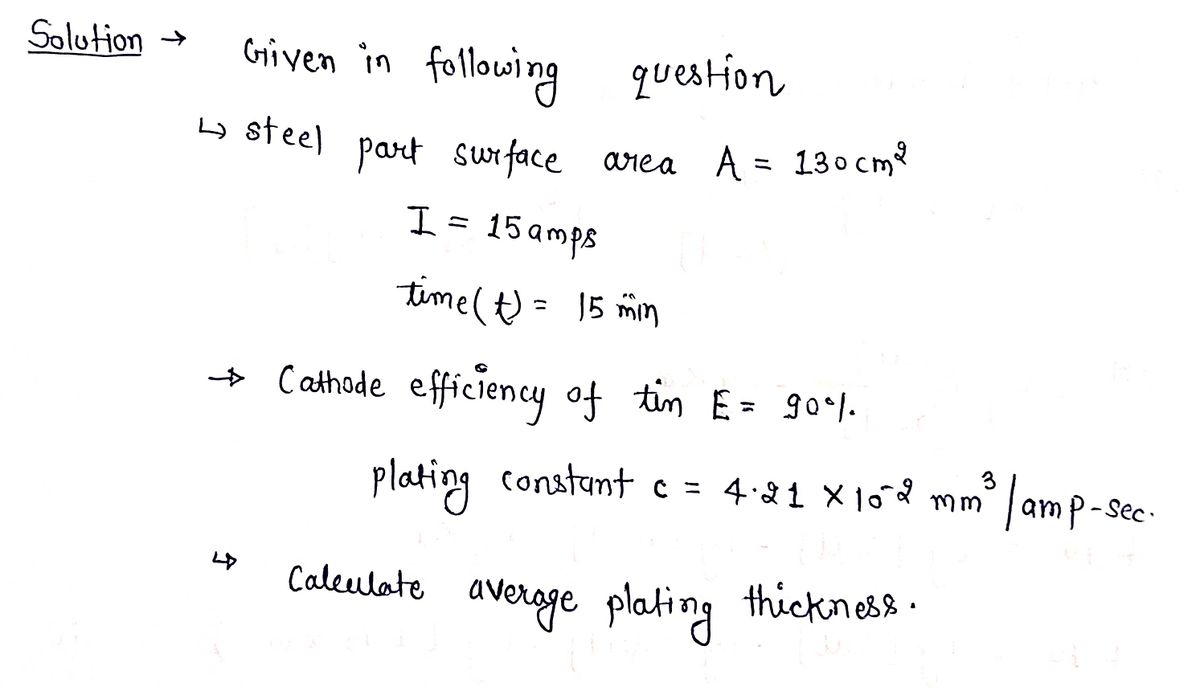 Solution → Given in following question
↳ steel part surface area A = 130cm²
I = 15amps
time(t) = 15 min
→ Cathode efficiency of tin E = 90%.
plating constant c = 4.21 × 10⁻² mm³/amp-sec.
↳ Calculate average plating thickness.